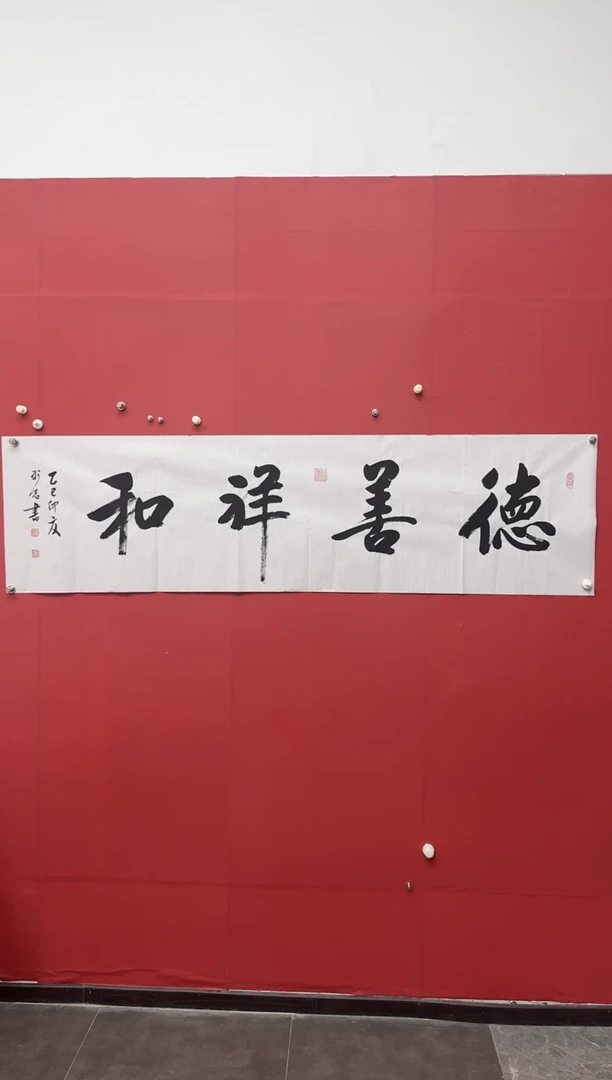 德善祥和
乙巳仲夏
书